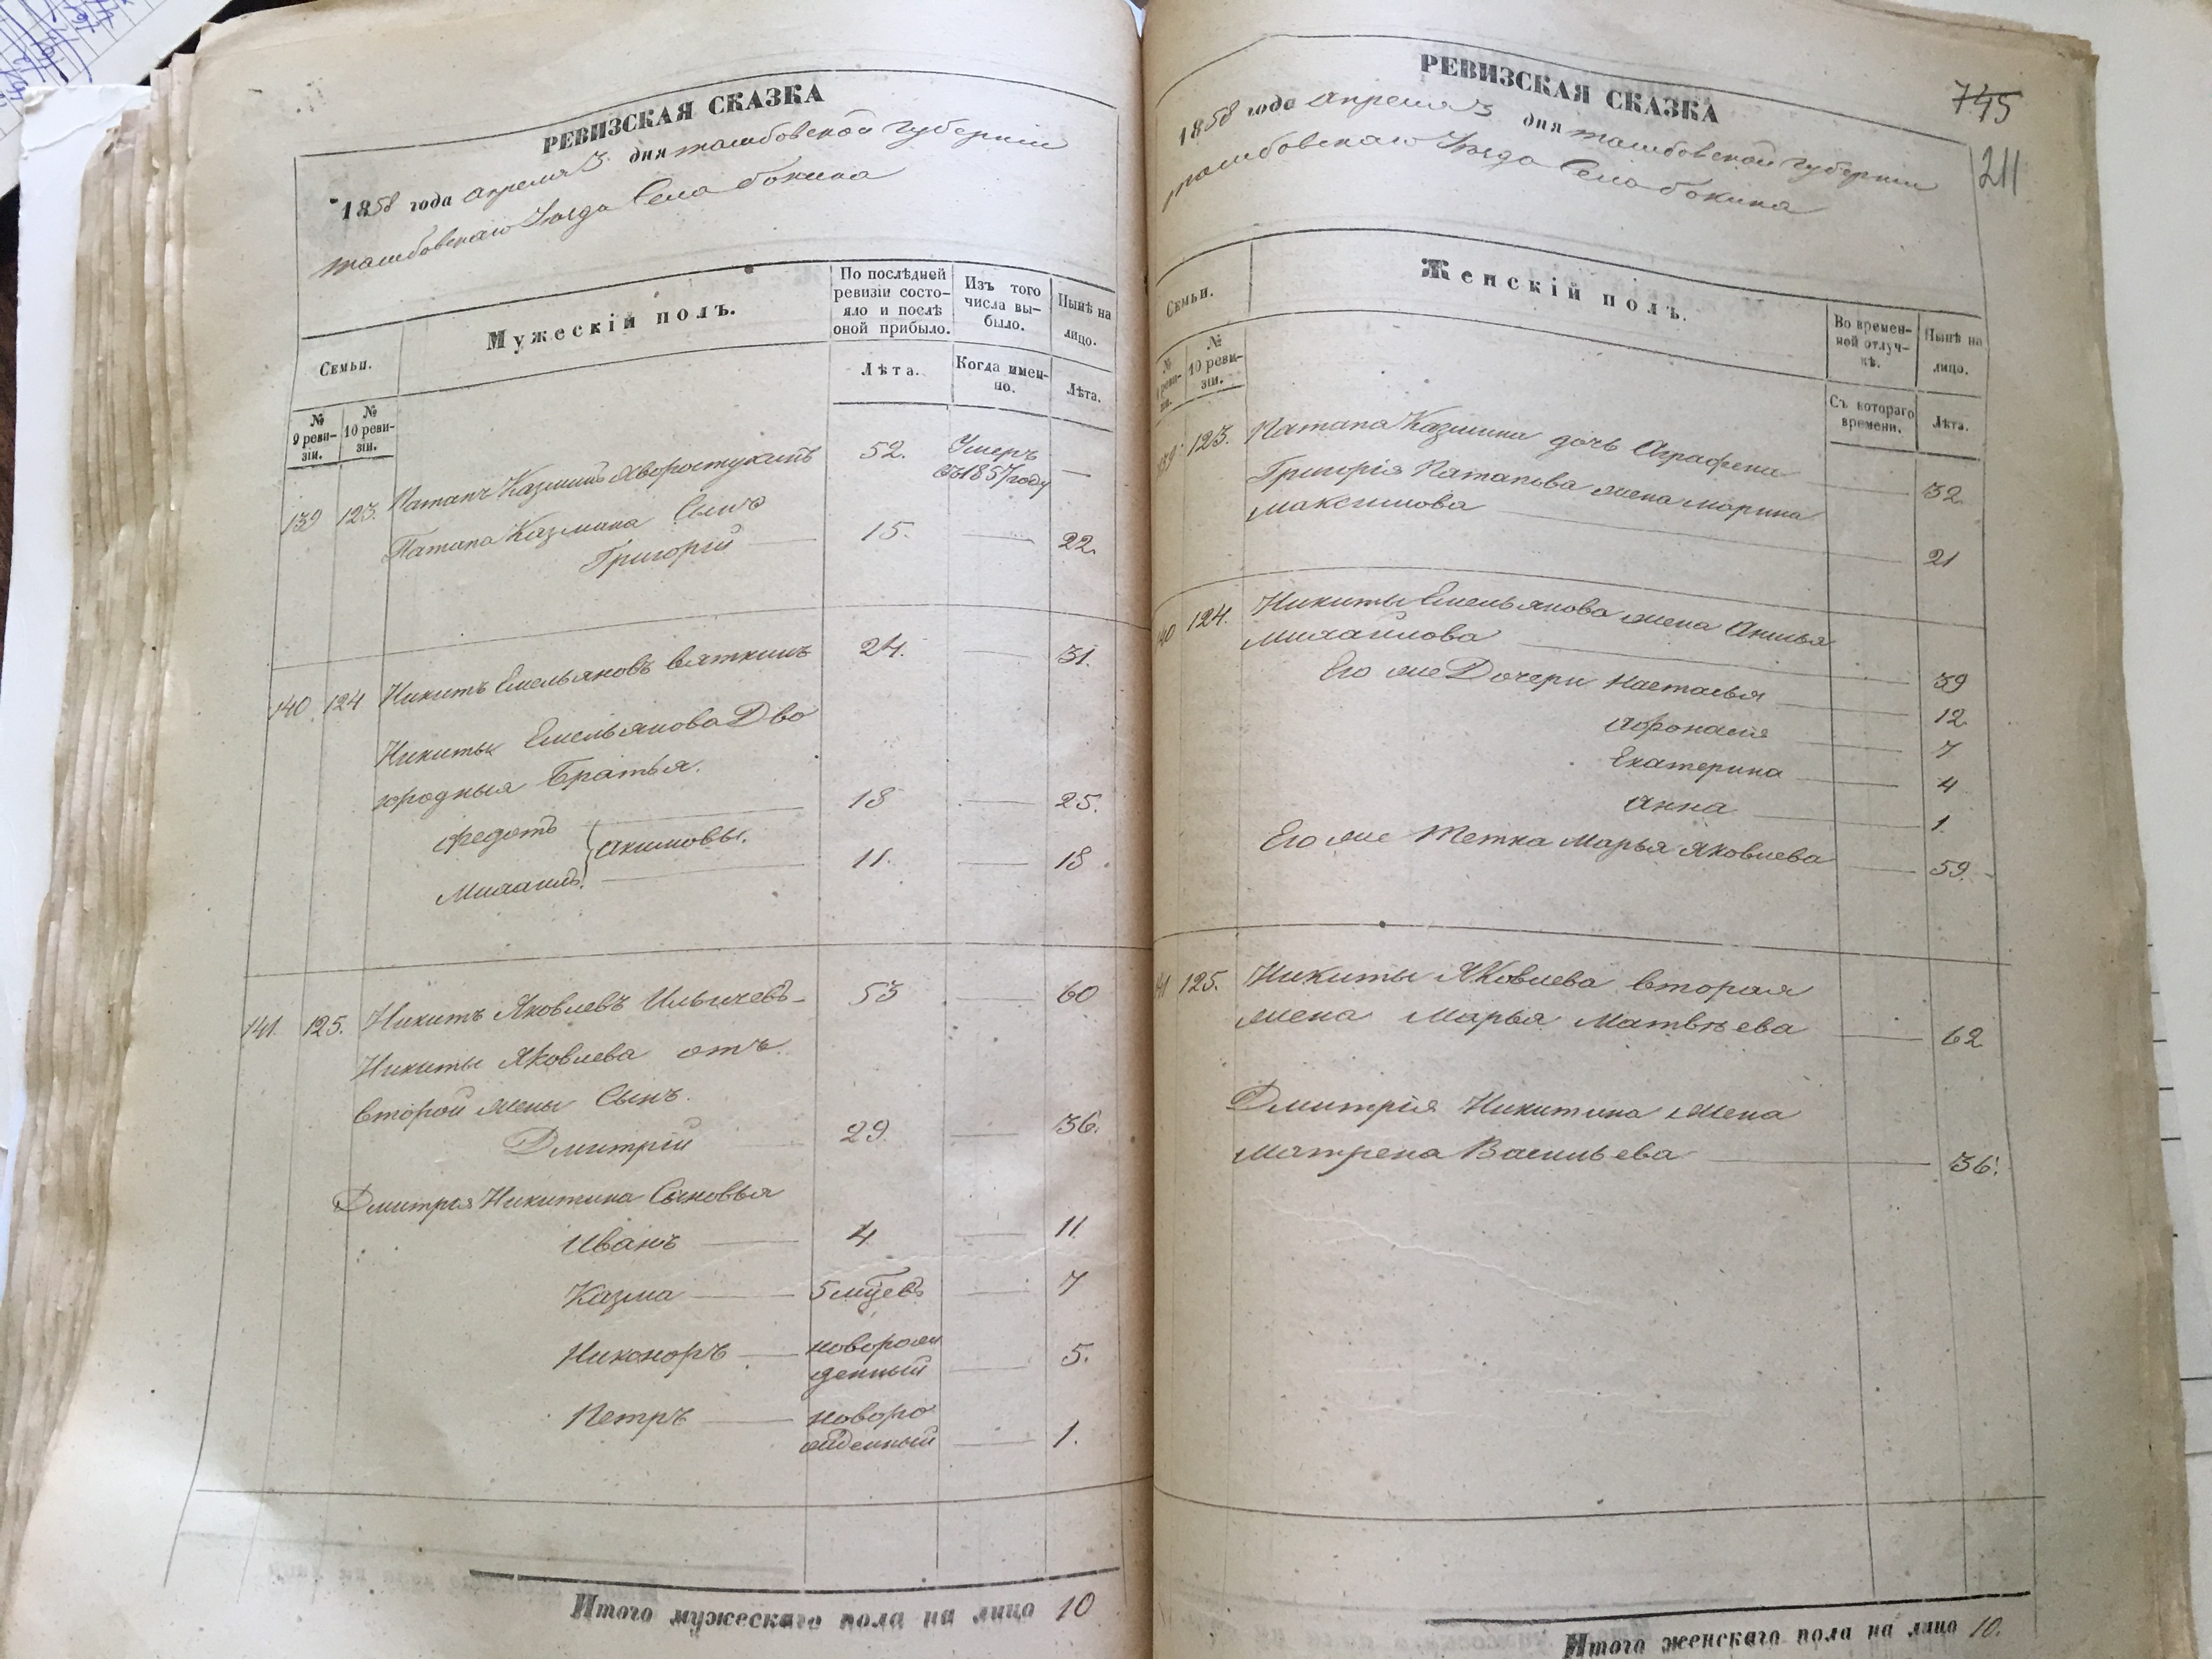 РЕВИЗСКАЯ СКАЗКА
1858 года апреля 3 дня тамбовской губернии
тамбовскаго Уезда Села бокина
Семьи.
Мужескій полъ.
По послѣдней ревизіи состо-
яло и послѣ
оной прибыло.
Изъ того
числа вы-
было.
Нынѣ на
лицо.
№
9 реви-
зіи.
№
10 реви-
зіи.
Лѣта.
Когда имен-
но.
Лѣта.
139 123. Патапъ Казминъ 52. Умеръ
въ 1857 году —
Патапа Казмина Сынъ
Григорій 15. — 22.
140 124 Никитъ Емельяновъ вяткинъ 24. — 31.
Никиты Емельянова Дво
юродныя Братья.
Федотъ 18 — 25.
Акимовы.
Михаилъ 11. — 18
141. 125. Никитъ Яковлевъ Ильичевъ 53 — 60
Никиты Яковлева отъ
второй жены Сынъ.
Дмитрій 29. — 36.
Дмитрія Никитина Сыновья
Иванъ — 4 — 11
Казма — 5 мцевъ — 7
Никоноръ —новорож
денный — 5.
Петръ — новоро
жденный — 1.
Итого мужескаго пола на лицо 10
РЕВИЗСКАЯ СКАЗКА
745
1858 года апреля 3 дня тамбовской губернии
тамбовскаго Уезда Села бокина
211
Семьи.
Женскій полъ.
Во времен-
ной отлуч-
кѣ.
Нынѣ на
лицо.
№
9 реви-
зіи.
№
10 реви-
зіи.
Съ котораго
времени.
Лѣта.
139 123. Патапа Казмина дочь Аграфена — 32
Григорія Патапова жена марина
максимова — 21
140 124. Никиты Емельянова жена
михайлова — 39
Его же Дочери настасья — 12
Афронасія — 7
Екатерина — 4
Анна — 1.
Его же тетка марья яковлева — 59.
141 125. Никиты Яковлева вторая
жена Марья Матвѣева — 62
Дмитрія Никитина жена
матрена Васильева — 36.
Итого женскаго пола на лицо 10.